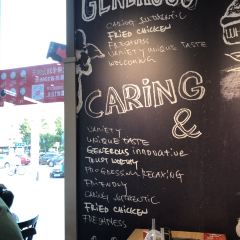 GENEROUS
CARING AUTHENTIC
FRIED CHICKEN
FRESHNESS
VARIETY UNIQUE TASTE
WELCOMING
CARING
&
VARIETY
UNIQUE TASTE
GENEROUS innovative
TRUST WORTHY
PROGRESSIVE RELAXING
FRIENDLY
CARING AUTHENTIC
FRIED CHICKEN
FRESHNESS